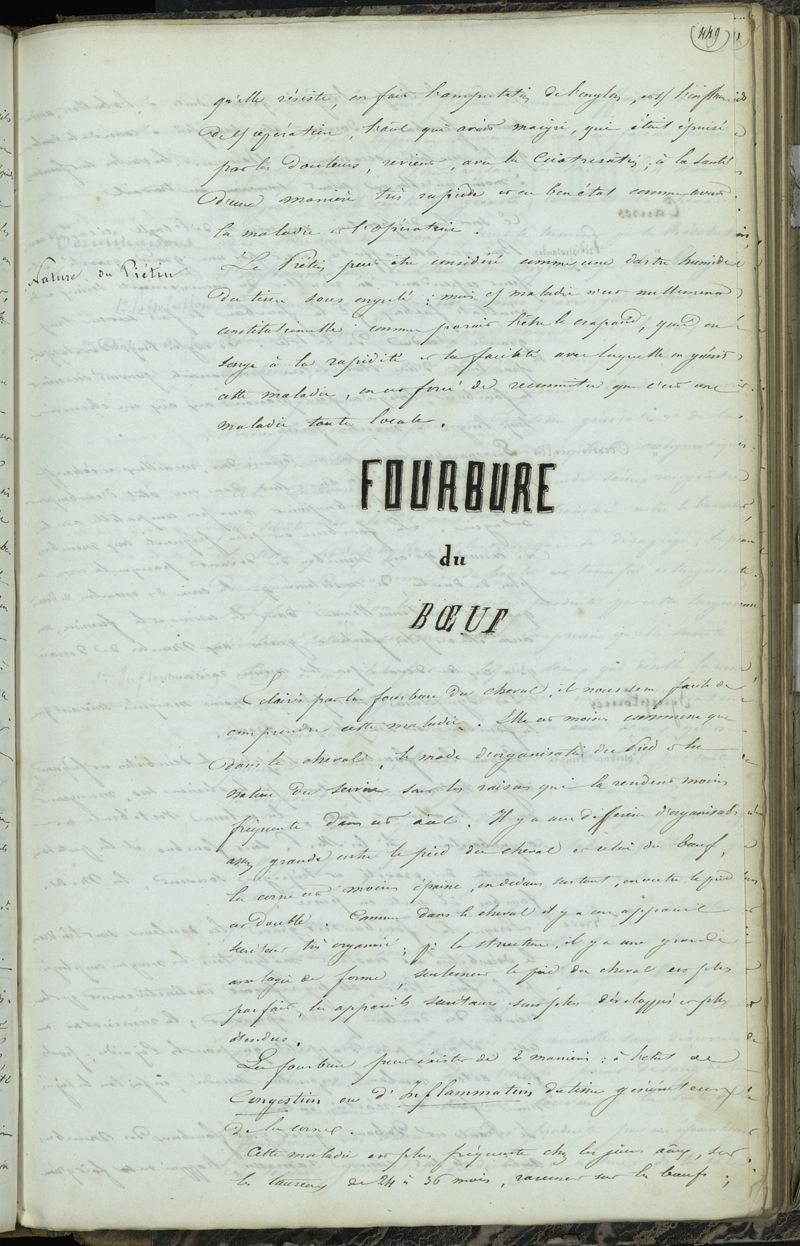 449
qu'elle résiste, on fait l'amputation de l'onglon, et sous l'influence
de cette opération, l'animal qui avait maigri, qui était épuisé
par les douleurs, revient, avec la cicatrisation, à la santé
d'une manière très rapide et en bon état comme avant
la maladie et l'opération.
Nature du Piétin
Le Piétin peut être considéré comme une dartre humide
du tissu sous ongulé ; mais cette maladie n'est nullement
constitutionnelle comme parait l'être le crapaud, quand on
songe à la rapidité et la facilité avec laquelle on guérit
cette maladie, on est forcé de reconnaitre que c'est une
maladie toute locale.
FOURBURE
du
BŒUF
Eclairés par la fourbure du cheval, il nous sera facile de
comprendre cette maladie. Elle est moins commune que
dans le cheval, le mode d'organisation du pied et la
nature du service sont les raisons qui la rendent moins
fréquente dans cet aal. Il y a une différence d'organisation
assez grande entre le pied du cheval et celui du bœuf,
la corne est moins épaisse, en dedans surtout, en outre le pied
est double. Comme dans le cheval il y a un appareil
très organisé, la structure, il y a une grande
analogie de forme, seulement le pied du cheval est plus
parfait, les appareils sont plus développés et plus
étendus.
La fourbure peut exister de 2 manières : à l'état de
Congestion ou d'Inflammation du tissu générateur
de la corne.
Cette maladie est plus fréquente chez les jeunes aaux, sur
les taureaux de 24 à 36 mois, rarement sur les bœufs ;